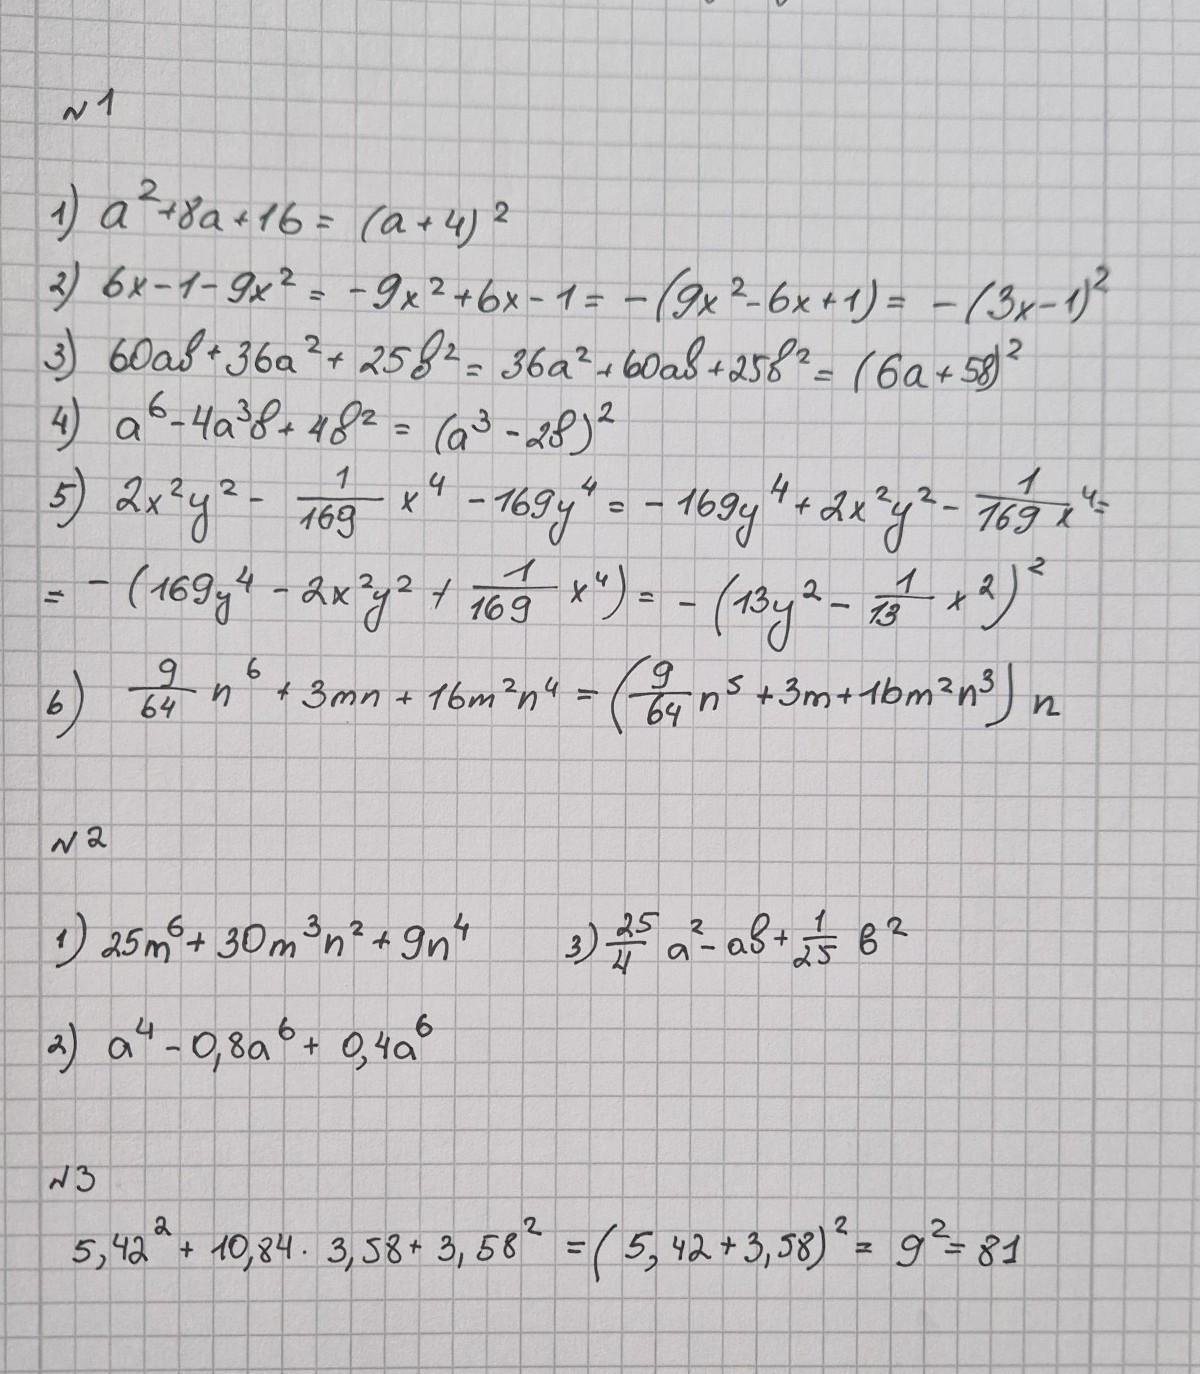 №1
1) a²+8a+16 = (a+4)²
2) 6x-1-9x² = -9x²+6x-1 = -(9x²-6x+1) = -(3x-1)²
3) 60ab+36a²+25b² = 36a²+60ab+25b² = (6a+5b)²
4) a⁶-4a³b+4b² = (a³-2b)²
5) 2x²y² - 1/169 x⁴ - 169y⁴ = -169y⁴+2x²y² - 1/169 x⁴ =
= -(169y⁴ - 2x²y² + 1/169 x⁴) = -(13y² - 1/13 x²)²
6) 9/64 n⁶ + 3mn + 16m²n⁴ = (9/64 n⁵ + 3m + 16m²n³) n
№2
1) 25m⁶ + 30m³n² + 9n⁴ 3) 25/4 a² - ab + 1/25 b²
2) a⁴ - 0,8a⁶ + 0,4a⁶
№3
5,42² + 10,84 · 3,58 + 3,58² = (5,42+3,58)² = 9² = 81